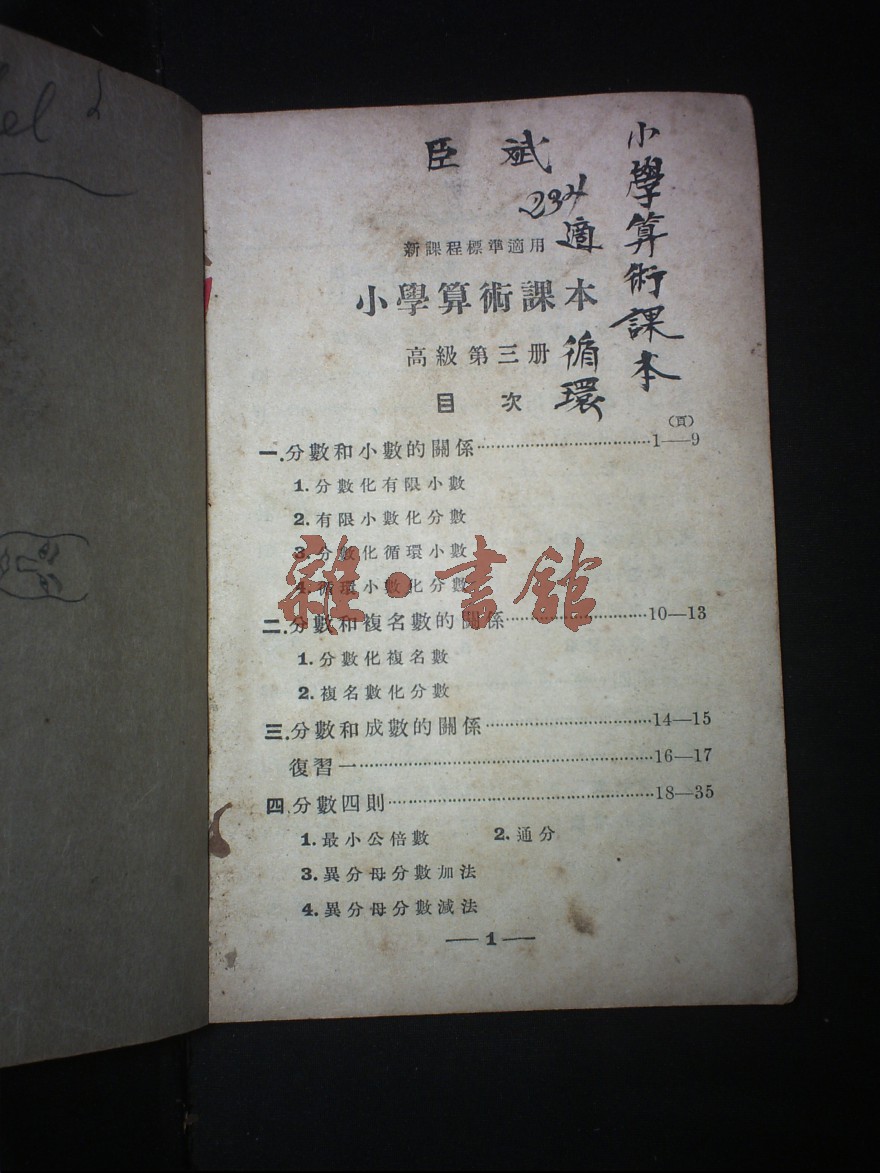 臣斌
234
小學算術課本
適
循環
新課程標準適用
小學算術課本
高級第三册
目次
(頁)
一.分數和小數的關係………1—9
1.分數化有限小數
2.有限小數化分數
3.分數化循環小數
4.循環小數化分數
雜·書館
二.分數和複名數的關係………10—13
1.分數化複名數
2.複名數化分數
三.分數和成數的關係………14—15
復習一………16—17
四.分數四則………18—35
1.最小公倍數 2.通分
3.異分母分數加法
4.異分母分數減法
—1—